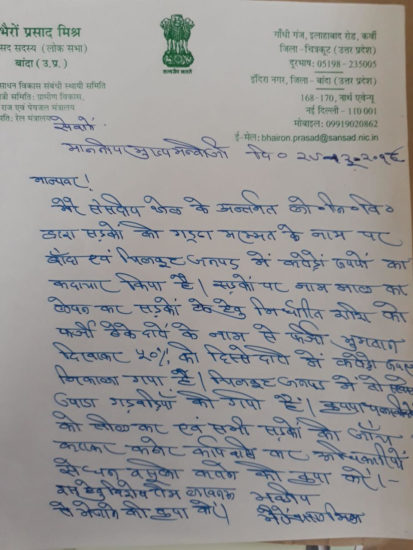 भैरों प्रसाद मिश्र
सद सदस्य (लोक सभा)
बांदा (उ.प्र.)
साधन विकास संबंधी स्थायी समिति
समिति: ग्रामीण विकास,
राज एवं पेयजल मंत्रालय
ति: रेल मंत्रालय
सत्यमेव जयते
गाँधी गंज, इलाहाबाद रोड, कर्वी
जिला - चित्रकूट (उत्तर प्रदेश)
दूरभाष: 05198 - 235005
इंदिरा नगर, जिला - बांदा (उत्तर प्रदेश)
168-170, नार्थ एवेन्यू
नई दिल्ली - 110 001
मोबाइल: 09919020862
ई-मेल: bhairon.prasad@sansad.nic.in
सेवा में
माननीय मुख्यमन्त्री जी दि०
मान्यवर!
मेरे संसदीय क्षेत्र के अन्तर्गत लो०नि०वि०
द्वारा सड़कों की गड्ढा मरम्मत के नाम पर
बाँदा एवं चित्रकूट जनपद में करोड़ों रुपयों का
कदाचार किया है। सड़कों पर नाम मात्र का
लेपन कर सड़कों के हेतु निर्धारित राशि को
फर्जी ठेकेदारों के नाम से फर्जी भुगतान
दिखाकर ५०% की हिस्सेदारी में करोड़ों रुपया
निकाला गया है। चित्रकूट जनपद में तो
ज्यादा गड़बड़ियाँ की गयी हैं। कृपया
को भेजकर एवं सभी सड़कों की जाँच
कराकर कठोर कार्यवाही कर
से धन वसूली कराने की कृपा करें।-
इस हेतु विशेष टीम लखनऊ भवदीय
से भेजने की कृपा करें। भैरों प्रसाद मिश्र